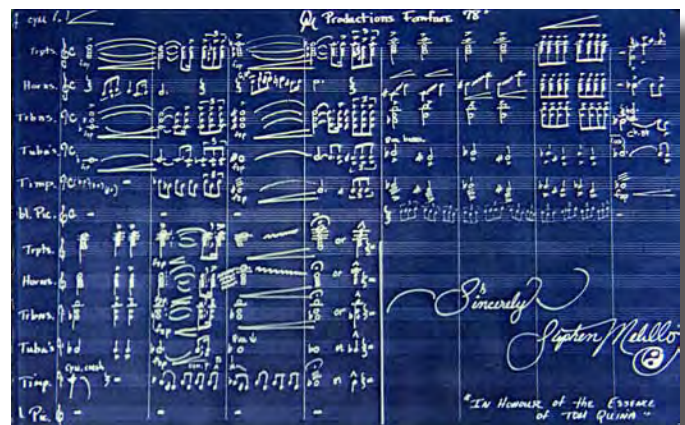 Productions Fanfare "78"
Trpts.
Horns.
Trbns.
Tuba's
Timp.
bl. Pic.
Trpts. or
Horns. or
Trbns. or
Tuba's
Timp.
l. Pic.
Sincerely
Stephen Melillo
"In Honour of the Essence
of Tom Quina"